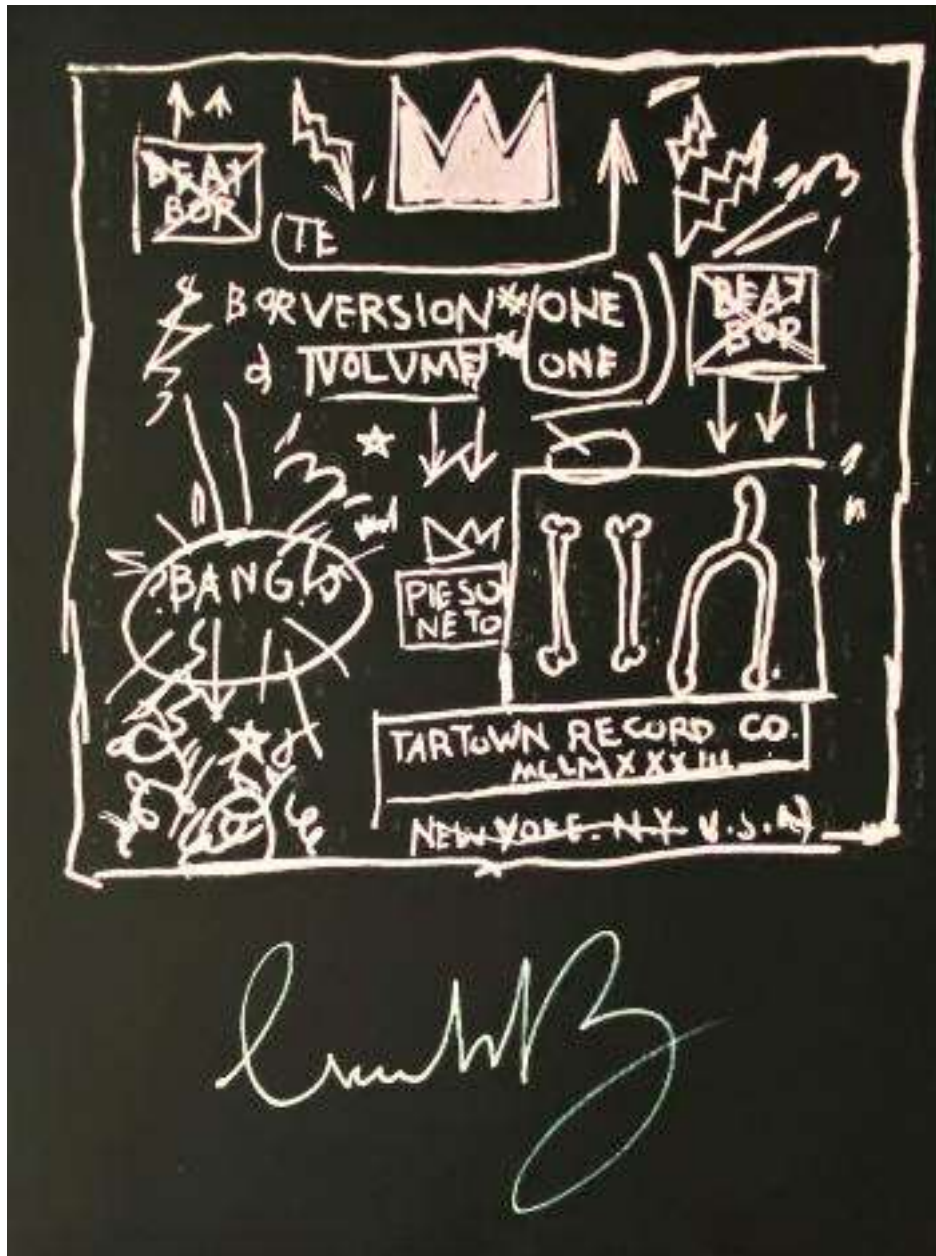 BEAT
BOR
TE
BOR VERSION** ONE
VOLUME* ONE
BEAT
BOR
BANG!
PIESO
NETO
TARTOWN RECORD CO.
NEW YORK. N.Y U.S.A